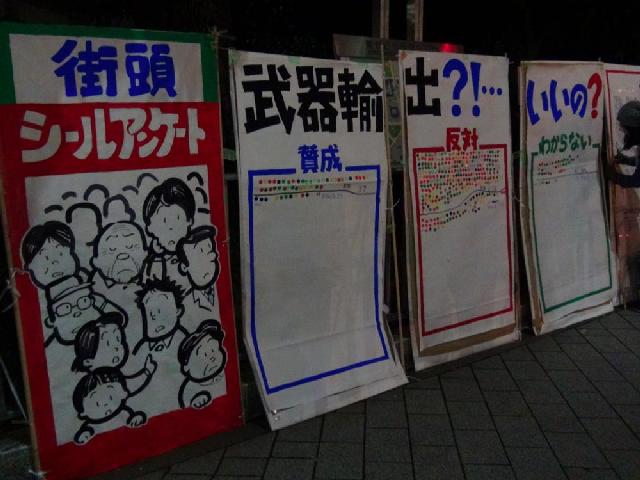 街頭
シールアンケート
武器輸出?!…いいの?
賛成
反対
わからない